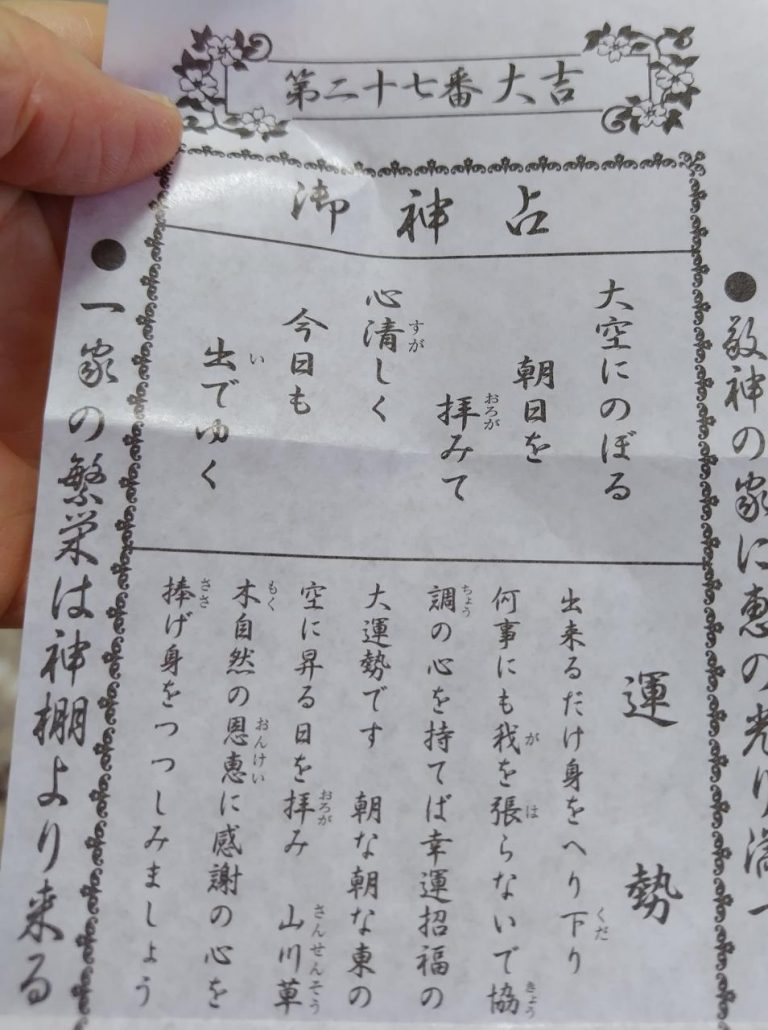 第二十七番 大吉
御神占
● 敬神の家に恵の光り満つ
大空にのぼる
朝日を
拝みて
おろが
心清しく
すが
今日も
出でゆく
い
運勢
出来るだけ身をへり下り
くだ
何事にも我を張らないで協
が は きょう
調の心を持てば幸運招福の
ちょう
大運勢です 朝な朝な東の
空に昇る日を拝み 山川草
おろが さんせんそう
木自然の恩恵に感謝の心を
もく おんけい
捧げ身をつつしみましょう
ささ
● 一家の繁栄は神棚より来る